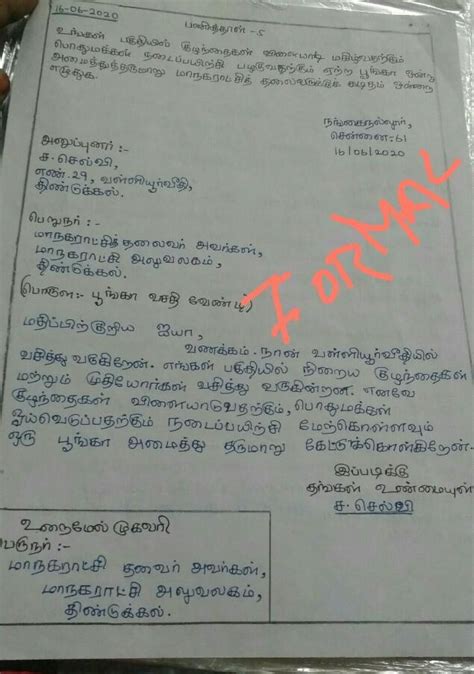 16-06-2020
பணித்தாள் - 5
உங்கள் பகுதியில் குழந்தைகள் விளையாடி மகிழ்வதற்கும்
பொதுமக்கள் நடைப்பயிற்சி பழகுவதற்கும் ஏற்ற பூங்கா ஒன்று
அமைத்துத்தருமாறு மாநகராட்சித் தலைவருக்குக் கடிதம் ஒன்றை
எழுதுக.
நங்கைநல்லூர்,
சென்னை-61
16/06/2020
அனுப்புனர் :-
ச. செல்வி,
எண்.29, வள்ளியூர்வீதி,
திண்டுக்கல்.
பெறுநர் :-
மாநகராட்சித்தலைவர் அவர்கள்,
மாநகராட்சி அலுவலகம்,
திண்டுக்கல்.
(பொருள்:- பூங்கா வசதி வேண்டி)
FORMAL
மதிப்பிற்குரிய ஐயா,
வணக்கம். நான் வள்ளியூர்வீதியில்
வசித்து வருகிறேன். எங்கள் பகுதியில் நிறைய குழந்தைகள்
மற்றும் முதியோர்கள் வசித்து வருகின்றன. எனவே
குழந்தைகள் விளையாடுவதற்கும், பொதுமக்கள்
ஓய்வெடுப்பதற்கும் நடைப்பயிற்சி மேற்கொள்ளவும்
ஒரு பூங்கா அமைத்து தருமாறு கேட்டுக்கொள்கிறேன்.
இப்படிக்கு
தங்கள் உண்மையுள்
ச. செல்வி
உறைமேல் முகவரி
பெருநர் :-
மாநகராட்சி தலைவர் அவர்கள்,
மாநகராட்சி அலுவலகம்,
திண்டுக்கல்.